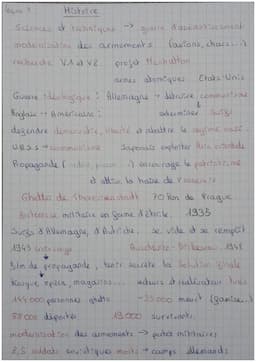 Histoire
Sciences et techniques → guerre d'anéantissement
modernisation des armements (avions, chars...)
recherche V1 et V2 projet Manhattan
armes atomiques Etats-Unis
Guerre idéologique : Allemagne → détruire communisme
Anglais + Américains : exterminer Juifs
défendre démocratie, liberté et abattre le régime nazi
URSS → communisme Japonais exploiter Asie orientale
Propagande (radio, presse...) encourage le patriotisme
et attise la haine de l'ennemie
Ghetto de Theresienstadt 70 km de Prague
forteresse militaire en forme d'étoile. 1935
Juifs d'Allemagne, d'Autriche, se vide et se remplit
1945 Auschwitz-Birkenau
film de propagande, tenir secrète la Solution finale
Kiosque, opéra, magasins... acteurs et réalisateur tués
144 000 personnes ghetto ~33 000 meurt (famine...)
88 000 déportés 19 000 survivants.
modernisation des armements → porte militaires
soldats soviétiques morts → camps allemands